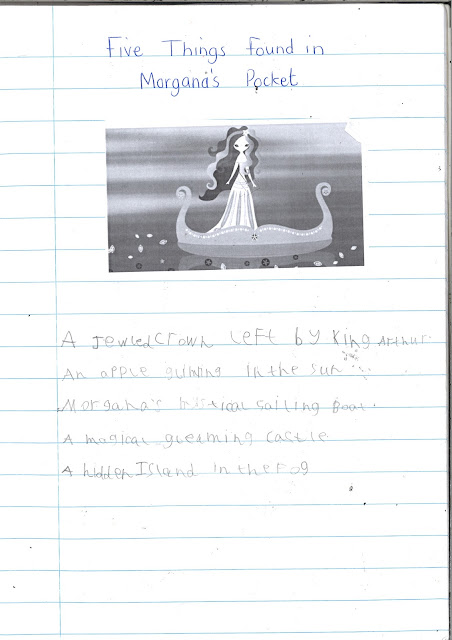 Five Things found in
Morgana's Pocket
A Jewled Crown left by King Arthur.
An apple gliming in the sun
Morgana's mistical sailing Boat.
A magical gleaming castle.
A hidden Island in the Fog